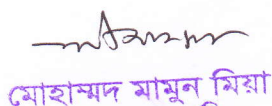 মোহাম্মদ মামুন মিয়া